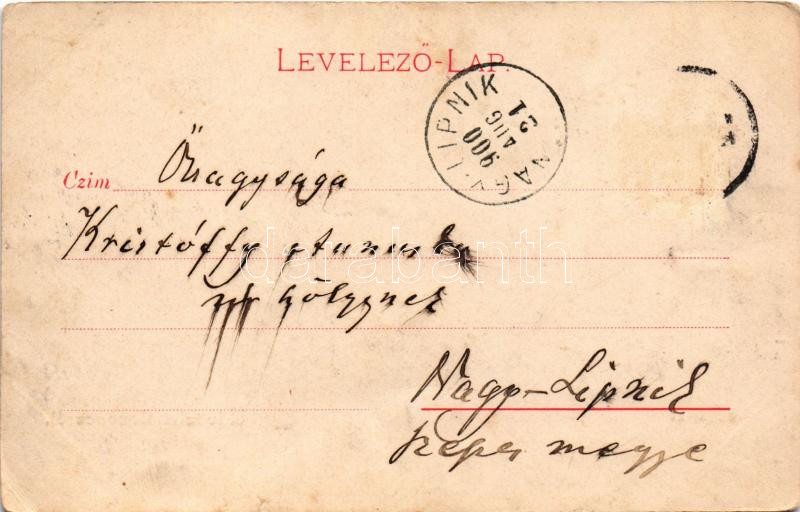 LEVELEZŐ-LAP.
NAGY-LIPNIK
900
AUG
21
Czim Őnagysága
Kristóffy
úr hölgynek
Nagy-Lipnik
Szepes megye
darabanth